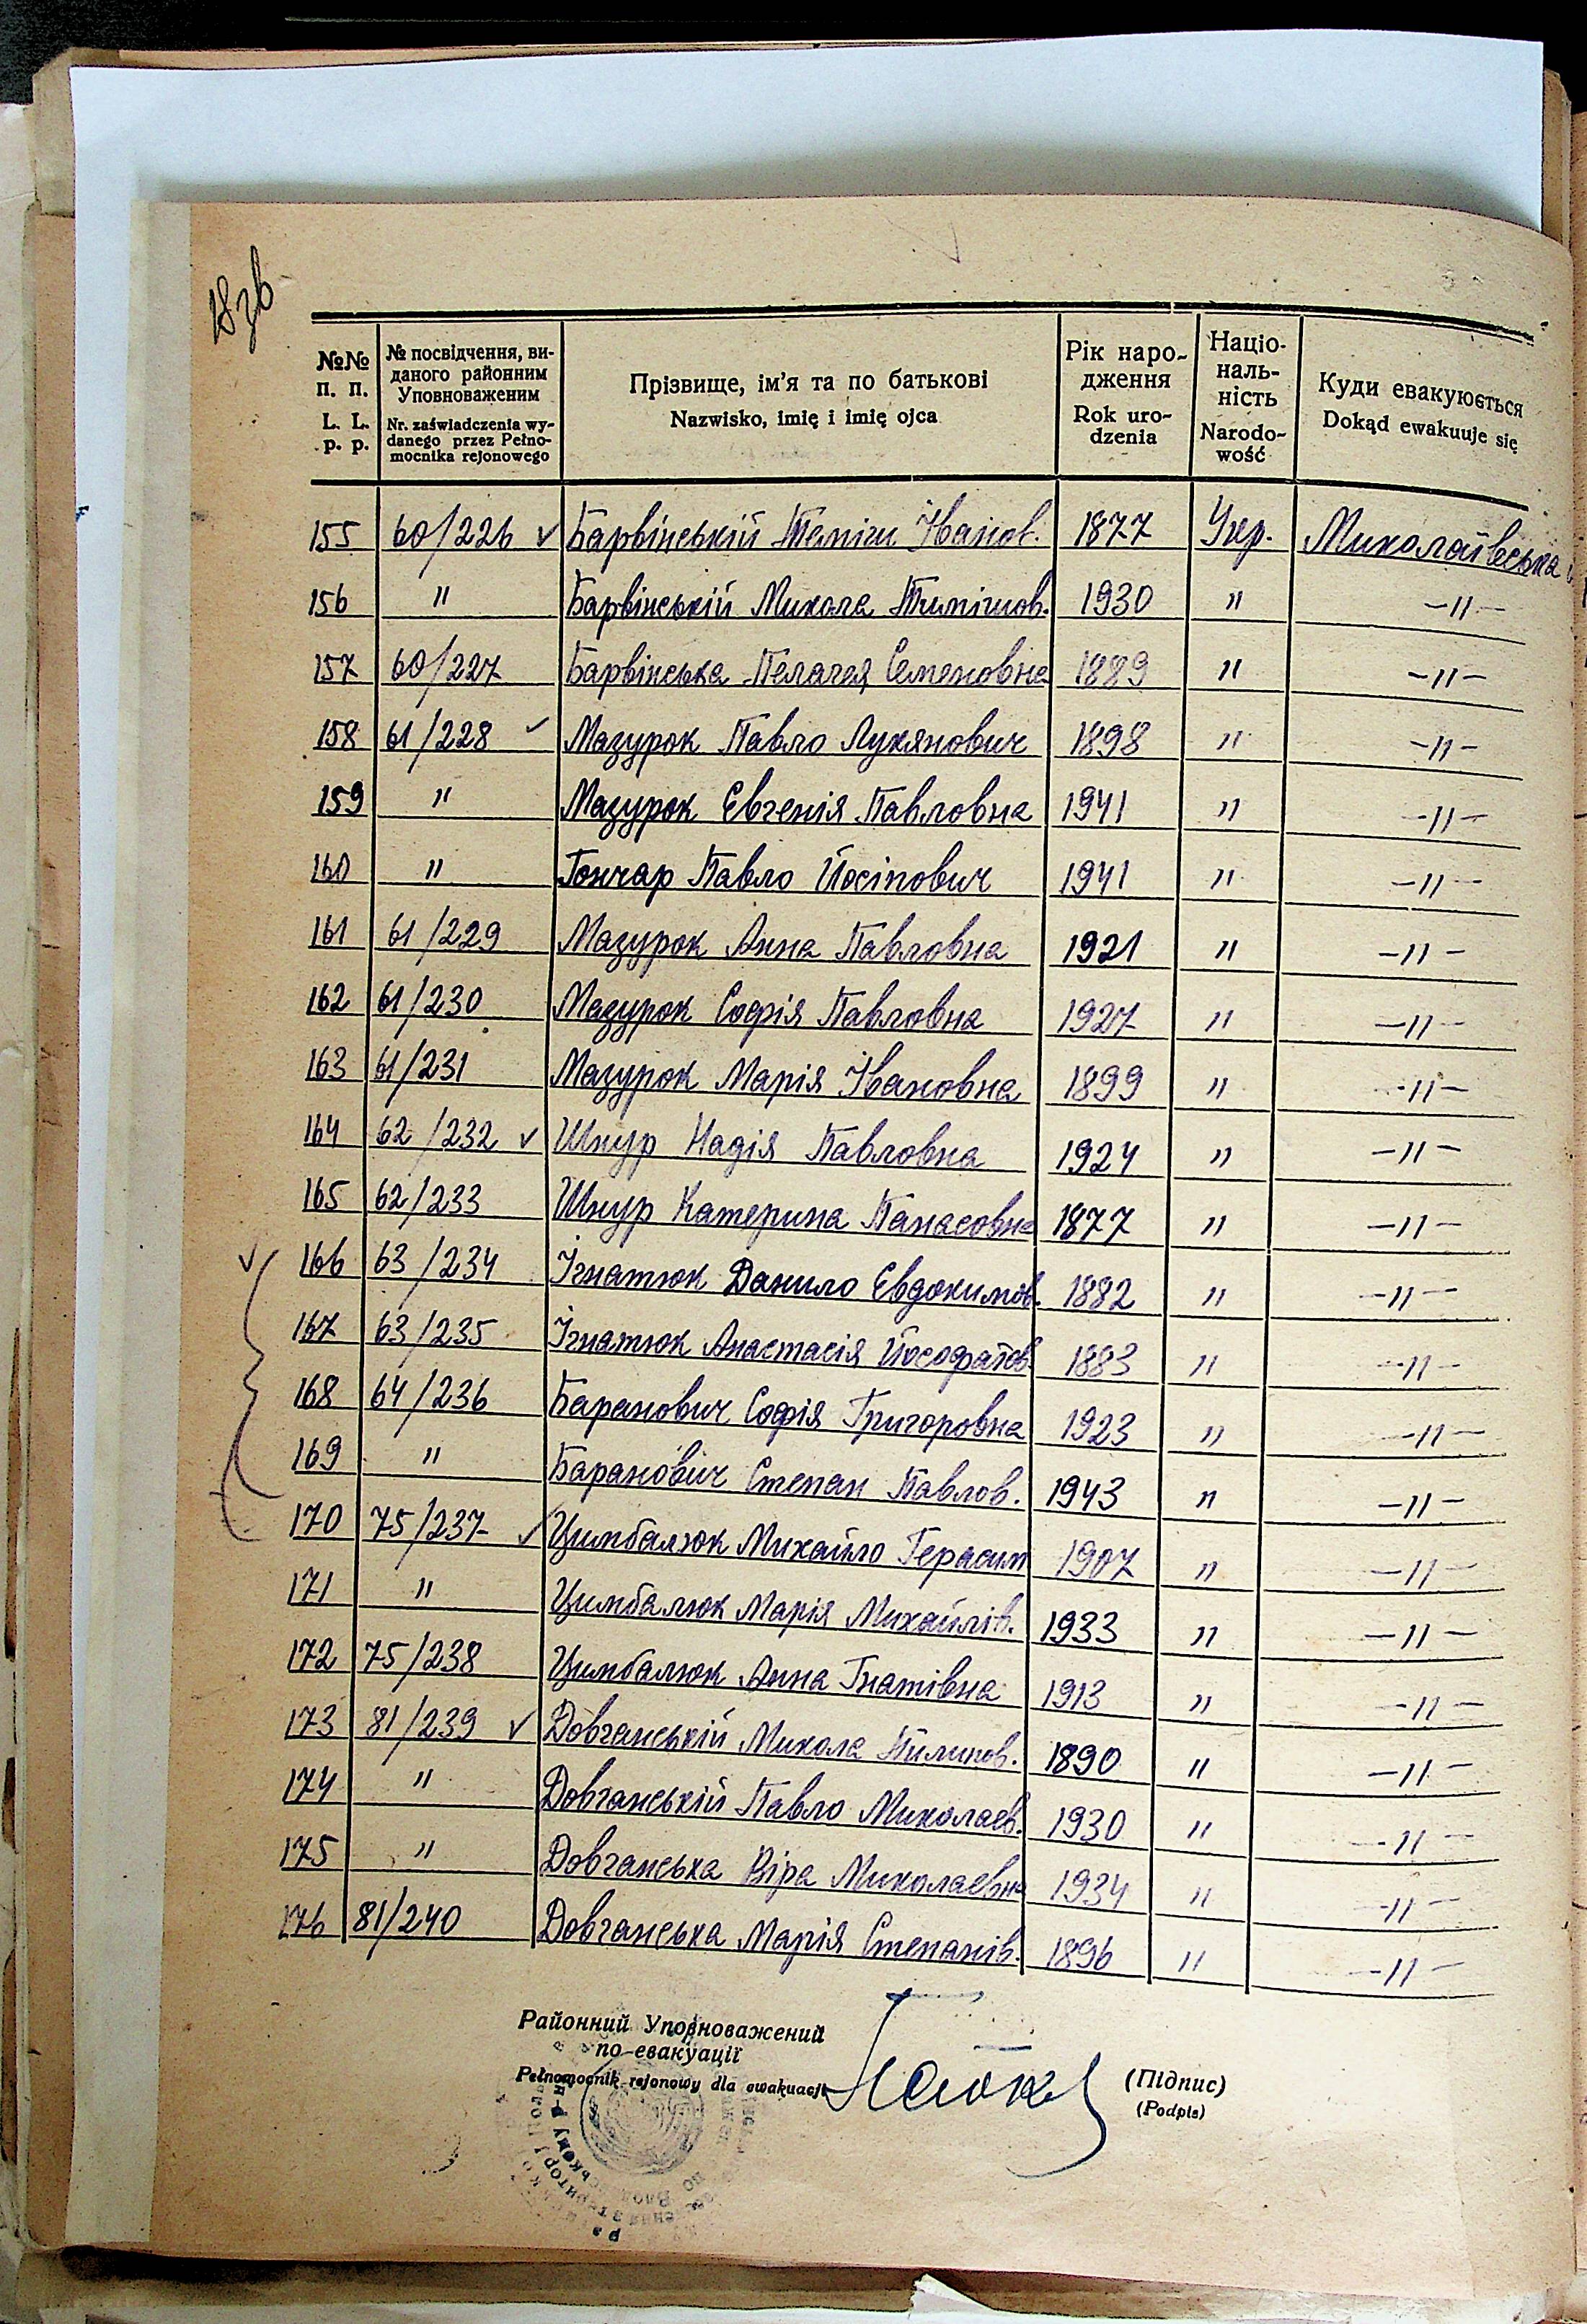 18зв
№№ п. п. L. L. p. p.
№ посвідчення, виданого районним Уповноваженим
Nr. zaświadczenia wydanego przez Pełnomocnika rejonowego
Прізвище, ім'я та по батькові
Nazwisko, imię i imię ojca
Рік народження
Rok urodzenia
Національність
Narodowość
Куди евакуюється
Dokąd ewakuuje się
155 60/226 ✓ Барвінській Теміш Іванов. 1877 Укр. Миколаївська
156 " Барвінській Микола Тимішов. 1930 " -"-
157 60/227 Барвінська Пелагея Семеновна 1889 " -"-
158 61/228 ✓ Мазурок Павло Лукянович 1898 " -"-
159 " Мазурок Евгенія Павловна 1941 " -"-
160 " Гончар Павло Йосіпович 1941 " -"-
161 61/229 Мазурок Анна Павловна 1921 " -"-
162 61/230 Мазурок Софія Павловна 1927 " -"-
163 61/231 Мазурок Марія Івановна 1899 " -"-
164 62/232 ✓ Шнур Надія Павловна 1924 " -"-
165 62/233 Шнур Катерина Панасовна 1877 " -"-
✓ 166 63/234 Ігнатюк Данило Евдокимов. 1882 " -"-
167 63/235 Ігнатюк Анастасія Йософатов. 1883 " -"-
168 64/236 Баранович Софія Григоровна 1923 " -"-
169 " Баранович Степан Павлов. 1943 " -"-
170 75/237 ✓ Цимбалюк Михайло Герасим 1907 " -"-
171 " Цимбалюк Марія Михайлів. 1933 " -"-
172 75/238 Цимбалюк Анна Гнатівна 1913 " -"-
173 81/239 ✓ Довганській Микола Пилипов. 1890 " -"-
174 " Довганській Павло Миколаев. 1930 " -"-
175 " Довганська Віра Миколаевна 1934 " -"-
176 81/240 Довганська Марія Степанів. 1896 " -"-
Районний Упорноважений
по евакуації
Pełnomocnik rejonowy dla ewakuacji
(Підпис)
(Podpis)